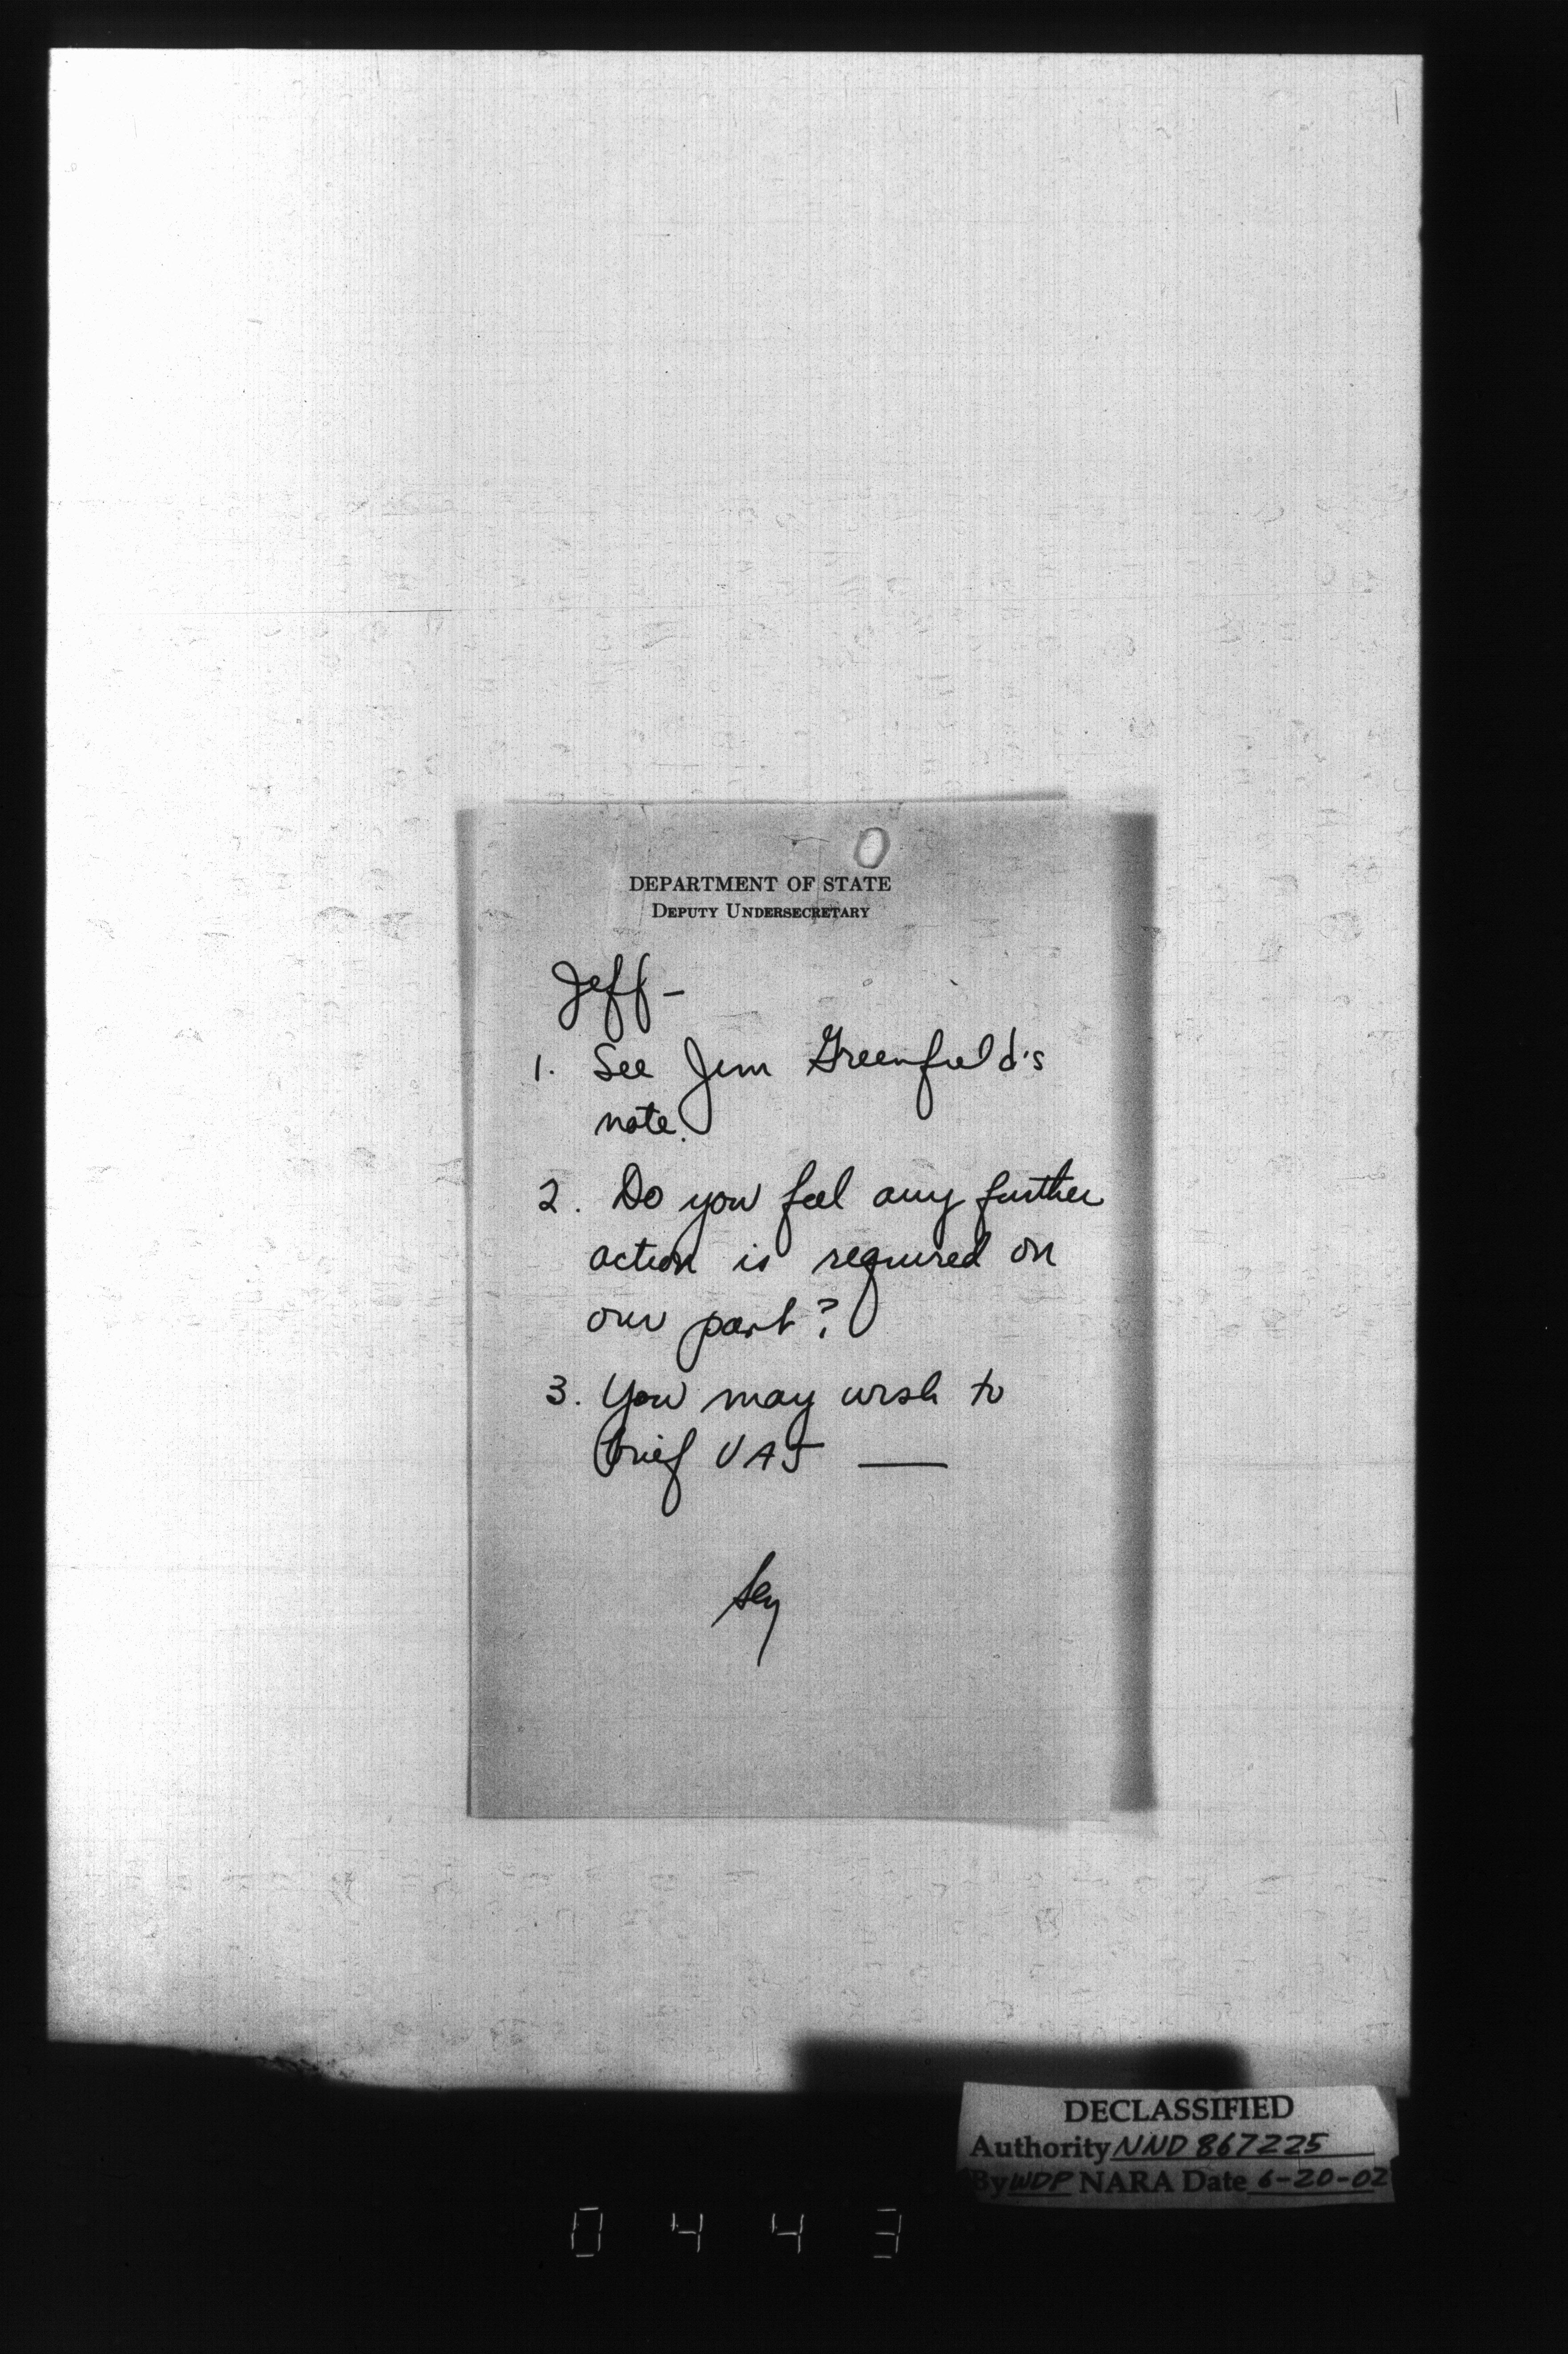 DEPARTMENT OF STATE
DEPUTY UNDERSECRETARY
Jeff -
1. See Jim Greenfield's
note.
2. Do you feel any further
action is required on
our part?
3. You may wish to
brief UAJ —
DECLASSIFIED
Authority NND 867225
By WDP NARA Date 6-20-02
0443